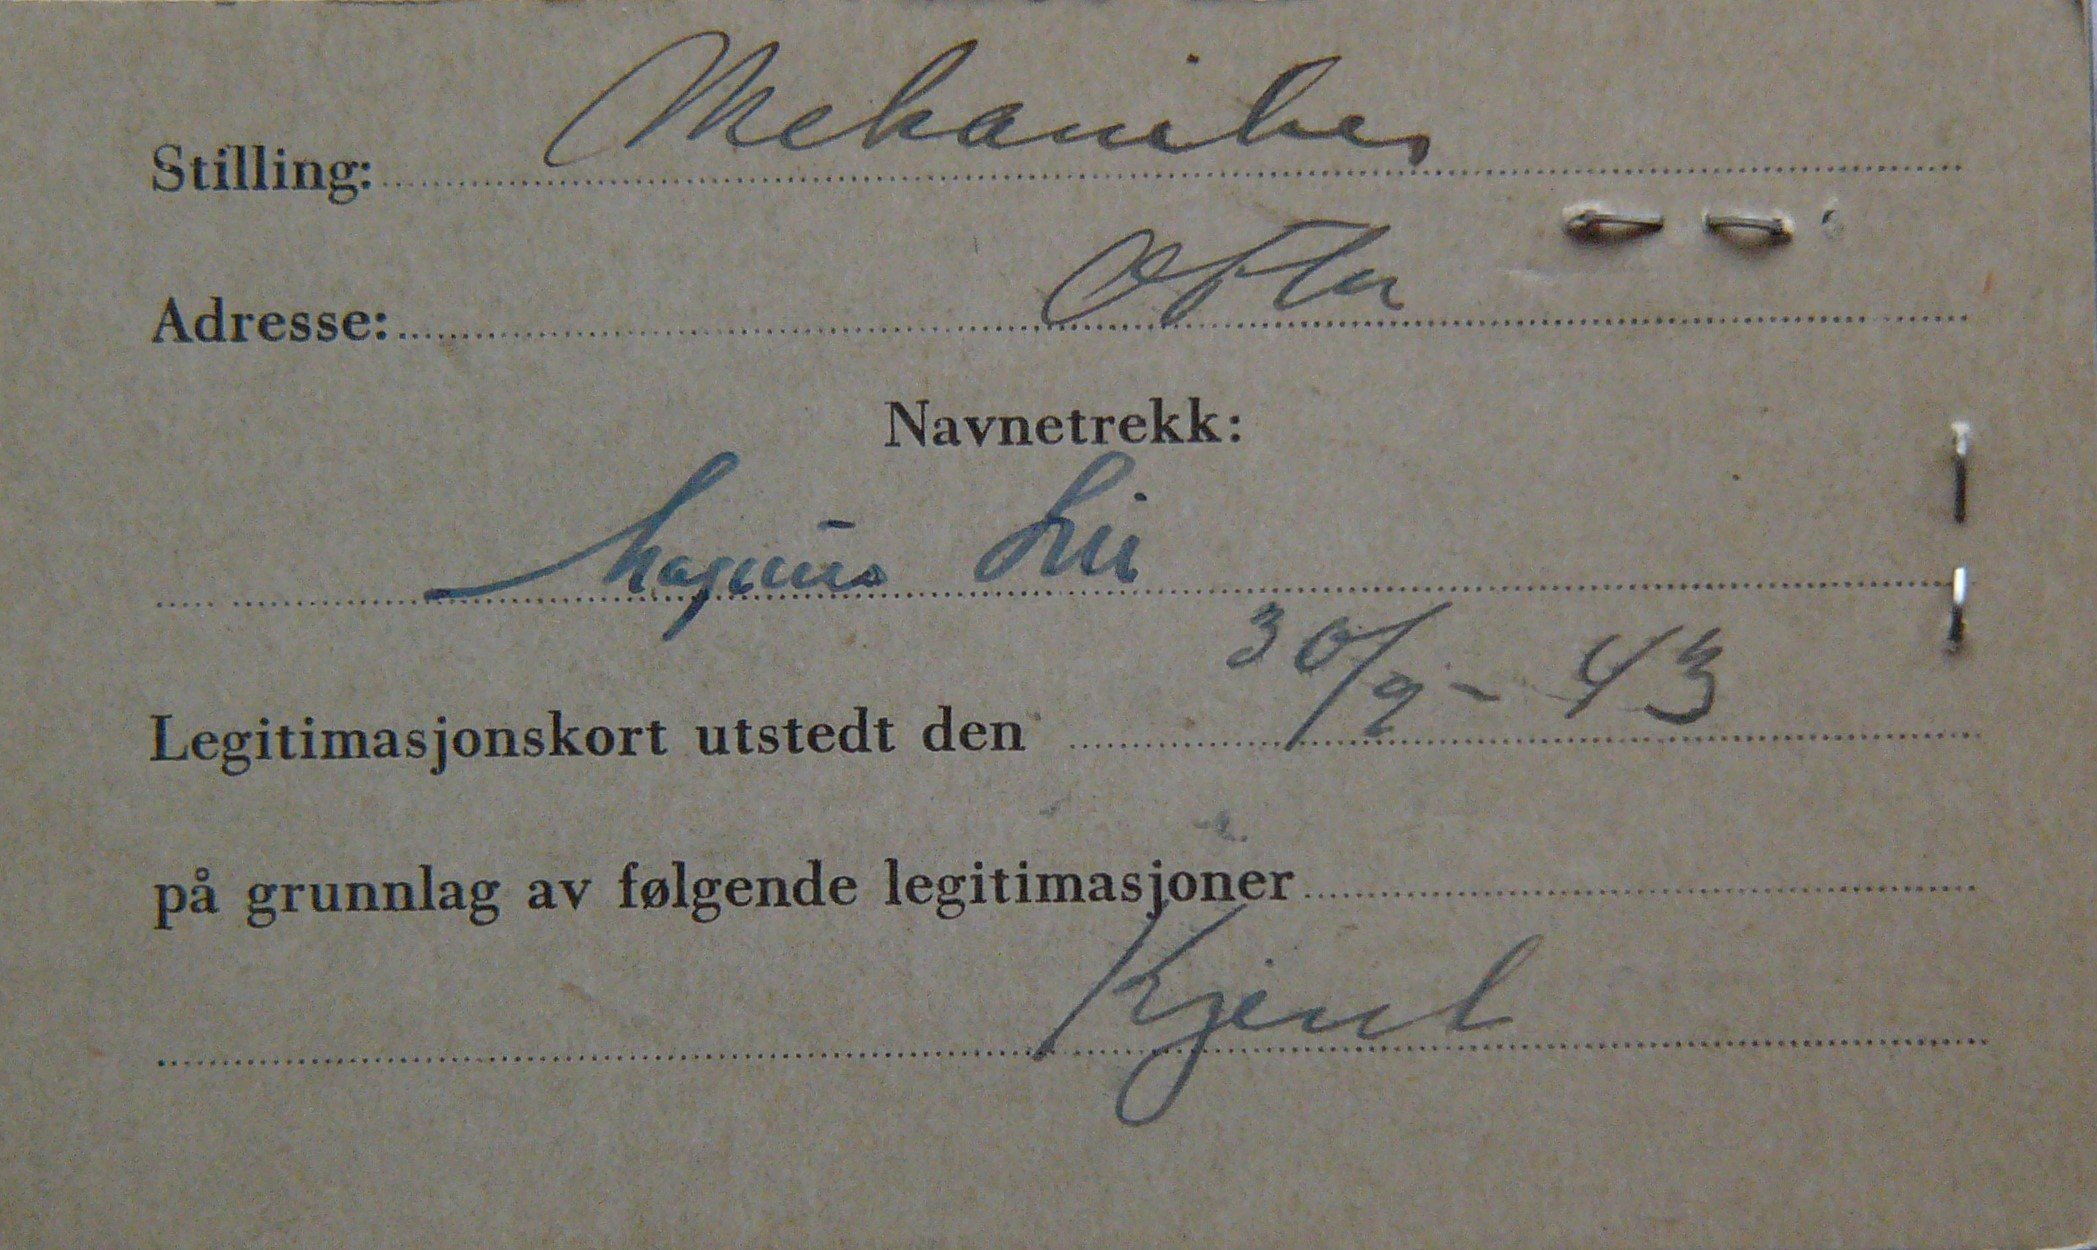 Stilling: Mekaniker
Adresse:
Navnetrekk:
Magnus Lii
Legitimasjonskort utstedt den 30/9 - 43
på grunnlag av følgende legitimasjoner
Kjent